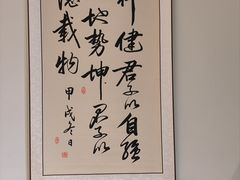 行健君子以自強
地勢坤君子以
德載物
甲戌冬日